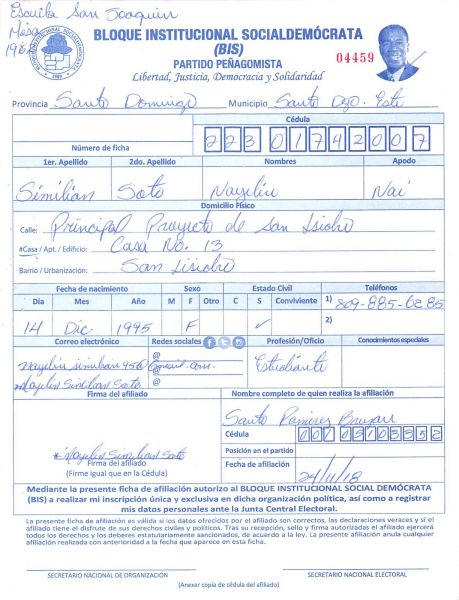 Escuela San Joaquin
Mesa
BLOQUE INSTITUCIONAL SOCIALDEMÓCRATA
(BIS)
PARTIDO PEÑAGOMISTA
Libertad, Justicia, Democracia y Solidaridad
04459
BLOQUE INSTITUCIONAL SOCIALDEMOCRATA
Provincia Santo Domingo Municipio Santo Dgo. Este
Cédula
Número de ficha 223 0174200 7
1er. Apellido 2do. Apellido Nombres Apodo
Similian Soto Nayelin Nai
Domicilio Físico
Calle: Principal Proyecto de San Isidro
#Casa / Apt. / Edificio: Casa No. 13
Barrio / Urbanización: San Isidro
Fecha de nacimiento Sexo Estado Civil Teléfonos
Día Mes Año M F Otro C S Conviviente 1) 809-885-6285
14 Dic 1995 F ✓ 2)
Correo electrónico Redes sociales Profesión/Oficio Conocimientos especiales
@ Estudiante
@gmail.com.
*Nayelin Similian Soto @
Firma del afiliado Nombre completo de quien realiza la afiliación
Santo Ramirez
Cédula
*Nayelin Similian Soto Posición en el partido
Firma del afiliado Fecha de afiliación 24/11/18
(Firma igual que en la Cédula)
Mediante la presente ficha de afiliación autorizo al BLOQUE INSTITUCIONAL SOCIAL DEMÓCRATA
(BIS) a realizar mi inscripción única y exclusiva en dicha organización política, así como a registrar
mis datos personales ante la Junta Central Electoral.
La presente ficha de afiliación es válida si los datos ofrecidos por el afiliado son correctos, las declaraciones veraces y si el
afiliado tiene el disfrute de sus derechos civiles y políticos. Tras su recepción, sello y firma autorizados el afiliado ejercerá
todos los derechos y los deberes estatutariamente sancionados, de acuerdo a la ley. La presente afiliación anula cualquier
afiliación realizada con anterioridad a la fecha que aparece en esta ficha.
SECRETARIO NACIONAL DE ORGANIZACIÓN SECRETARIO NACIONAL ELECTORAL
(Anexar copia de cédula del afiliado)